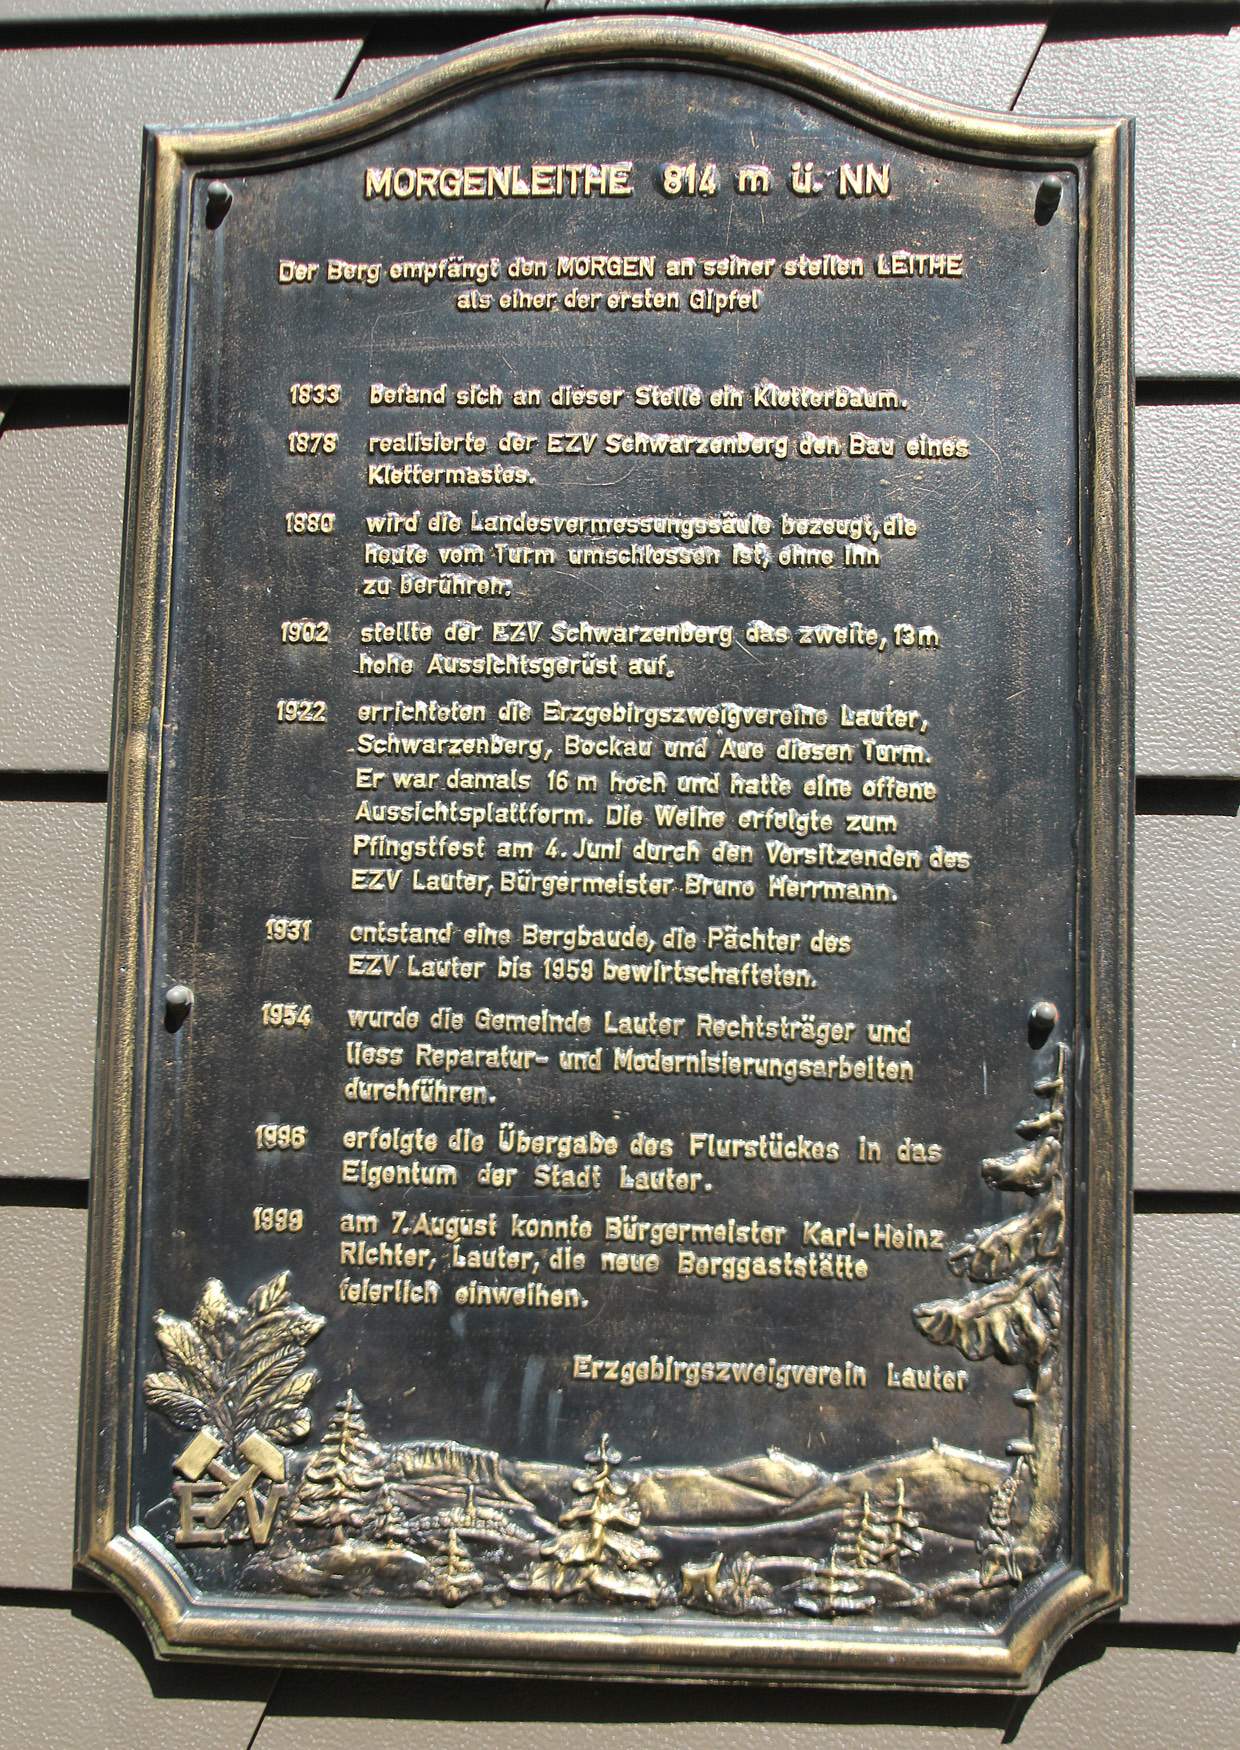 MORGENLEITHE 814 m ü. NN
Der Berg empfängt den MORGEN an seiner steilen LEITHE
als einer der ersten Gipfel
1833 befand sich an dieser Stelle ein Kletterbaum.
1878 realisierte der EZV Schwarzenberg den Bau eines
Klettermastes.
1880 wird die Landesvermessungssäule bezeugt, die
heute vom Turm umschlossen ist, ohne ihn
zu berühren.
1902 stellte der EZV Schwarzenberg das zweite, 13m
hohe Aussichtsgerüst auf.
1922 errichteten die Erzgebirgszweigvereine Lauter,
Schwarzenberg, Bockau und Aue diesen Turm.
Er war damals 16 m hoch und hatte eine offene
Aussichtsplattform. Die Weihe erfolgte zum
Pfingstfest am 4. Juni durch den Vorsitzenden des
EZV Lauter, Bürgermeister Bruno Herrmann.
1931 entstand eine Bergbaude, die Pächter des
EZV Lauter bis 1959 bewirtschafteten.
1954 wurde die Gemeinde Lauter Rechtsträger und
liess Reparatur- und Modernisierungsarbeiten
durchführen.
1996 erfolgte die Übergabe des Flurstückes in das
Eigentum der Stadt Lauter.
1999 am 7. August konnte Bürgermeister Karl-Heinz
Richter, Lauter, die neue Berggaststätte
feierlich einweihen.
Erzgebirgszweigverein Lauter
EV